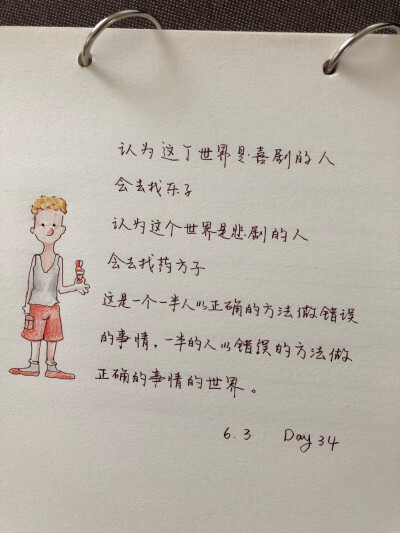 认为这个世界是喜剧的人
会去找乐子
认为这个世界是悲剧的人
会去找药方子
这是一个一半人以正确的方法做错误
的事情，一半的人以错误的方法做
正确的事情的世界。
6.3 Day 34